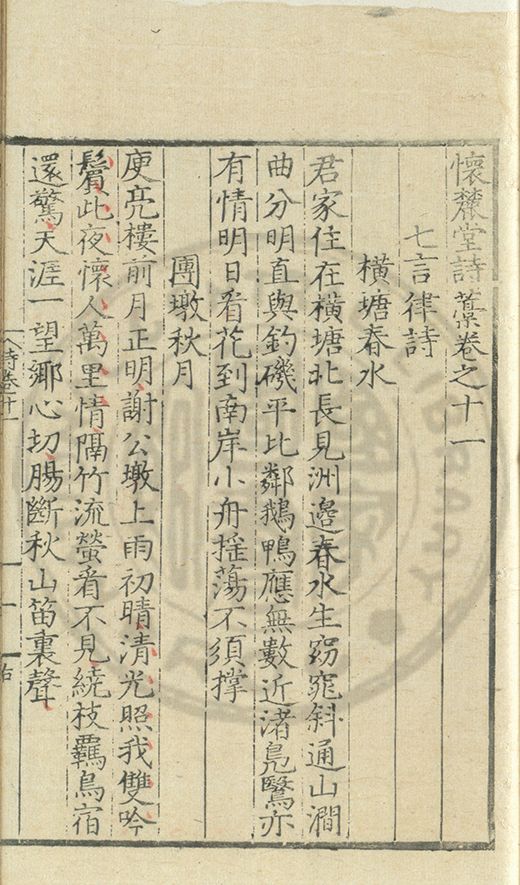 懷麓堂詩藁卷之十一
七言律詩
橫塘春水
君家住在橫塘北長見洲邉春水生窈窕斜通山澗
曲分明直與釣磯平比鄰鵝鴨應無數近渚鳬鷖亦
有情明日看花到南岸小舟揺蕩不須撑
團墩秋月
庾亮樓前月正明謝公墩上雨初晴清光照我雙吟
鬢此夜懷人萬里情隔竹流螢看不見繞枝羈鳥宿
還驚天涯一望鄉心切腸斷秋山笛裏聲
詩卷十一
一
右